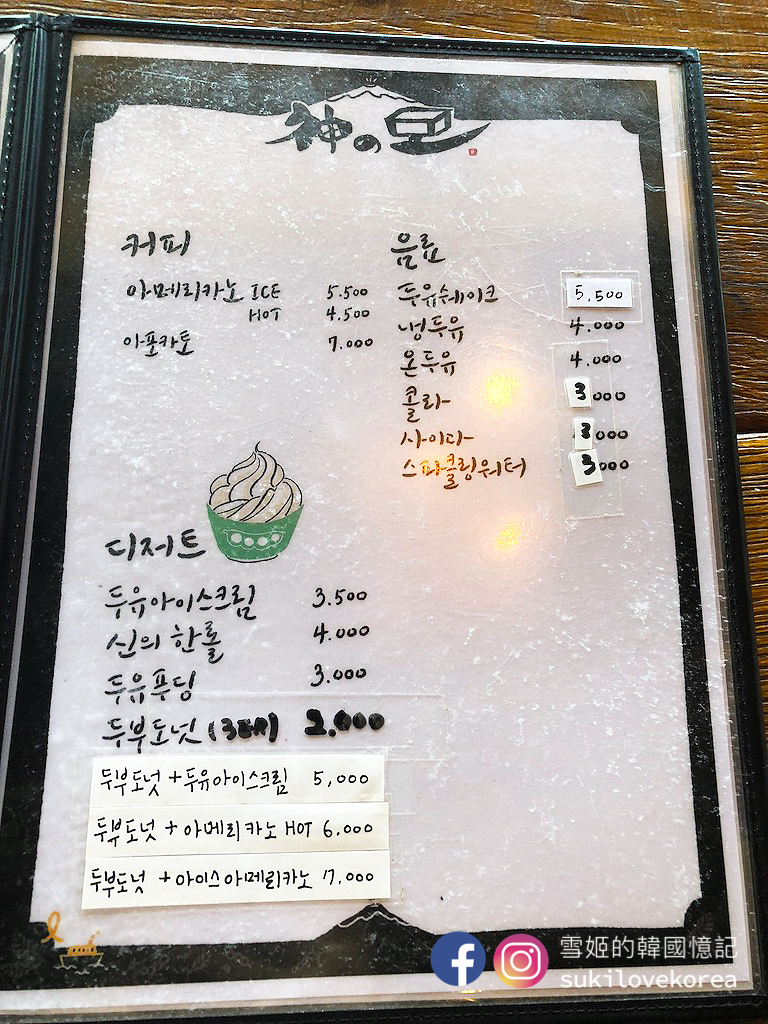 神の豆
커피
아메리카노 ICE 5.500
HOT 4.500
아포카토 7.000
음료
두유쉐이크 5,500
냉두유 4.000
온두유 4.000
콜라 3000
사이다 3000
스파클링워터 3000
디저트
두유아이스크림 3.500
신의 한롤 4.000
두유푸딩 3.000
두부도넛 (3pcs) 2.000
두부도넛 + 두유아이스크림 5,000
두부도넛 + 아메리카노 HOT 6.000
두부도넛 + 아이스아메리카노 7.000
雪姬的韓國憶記
sukilovekorea